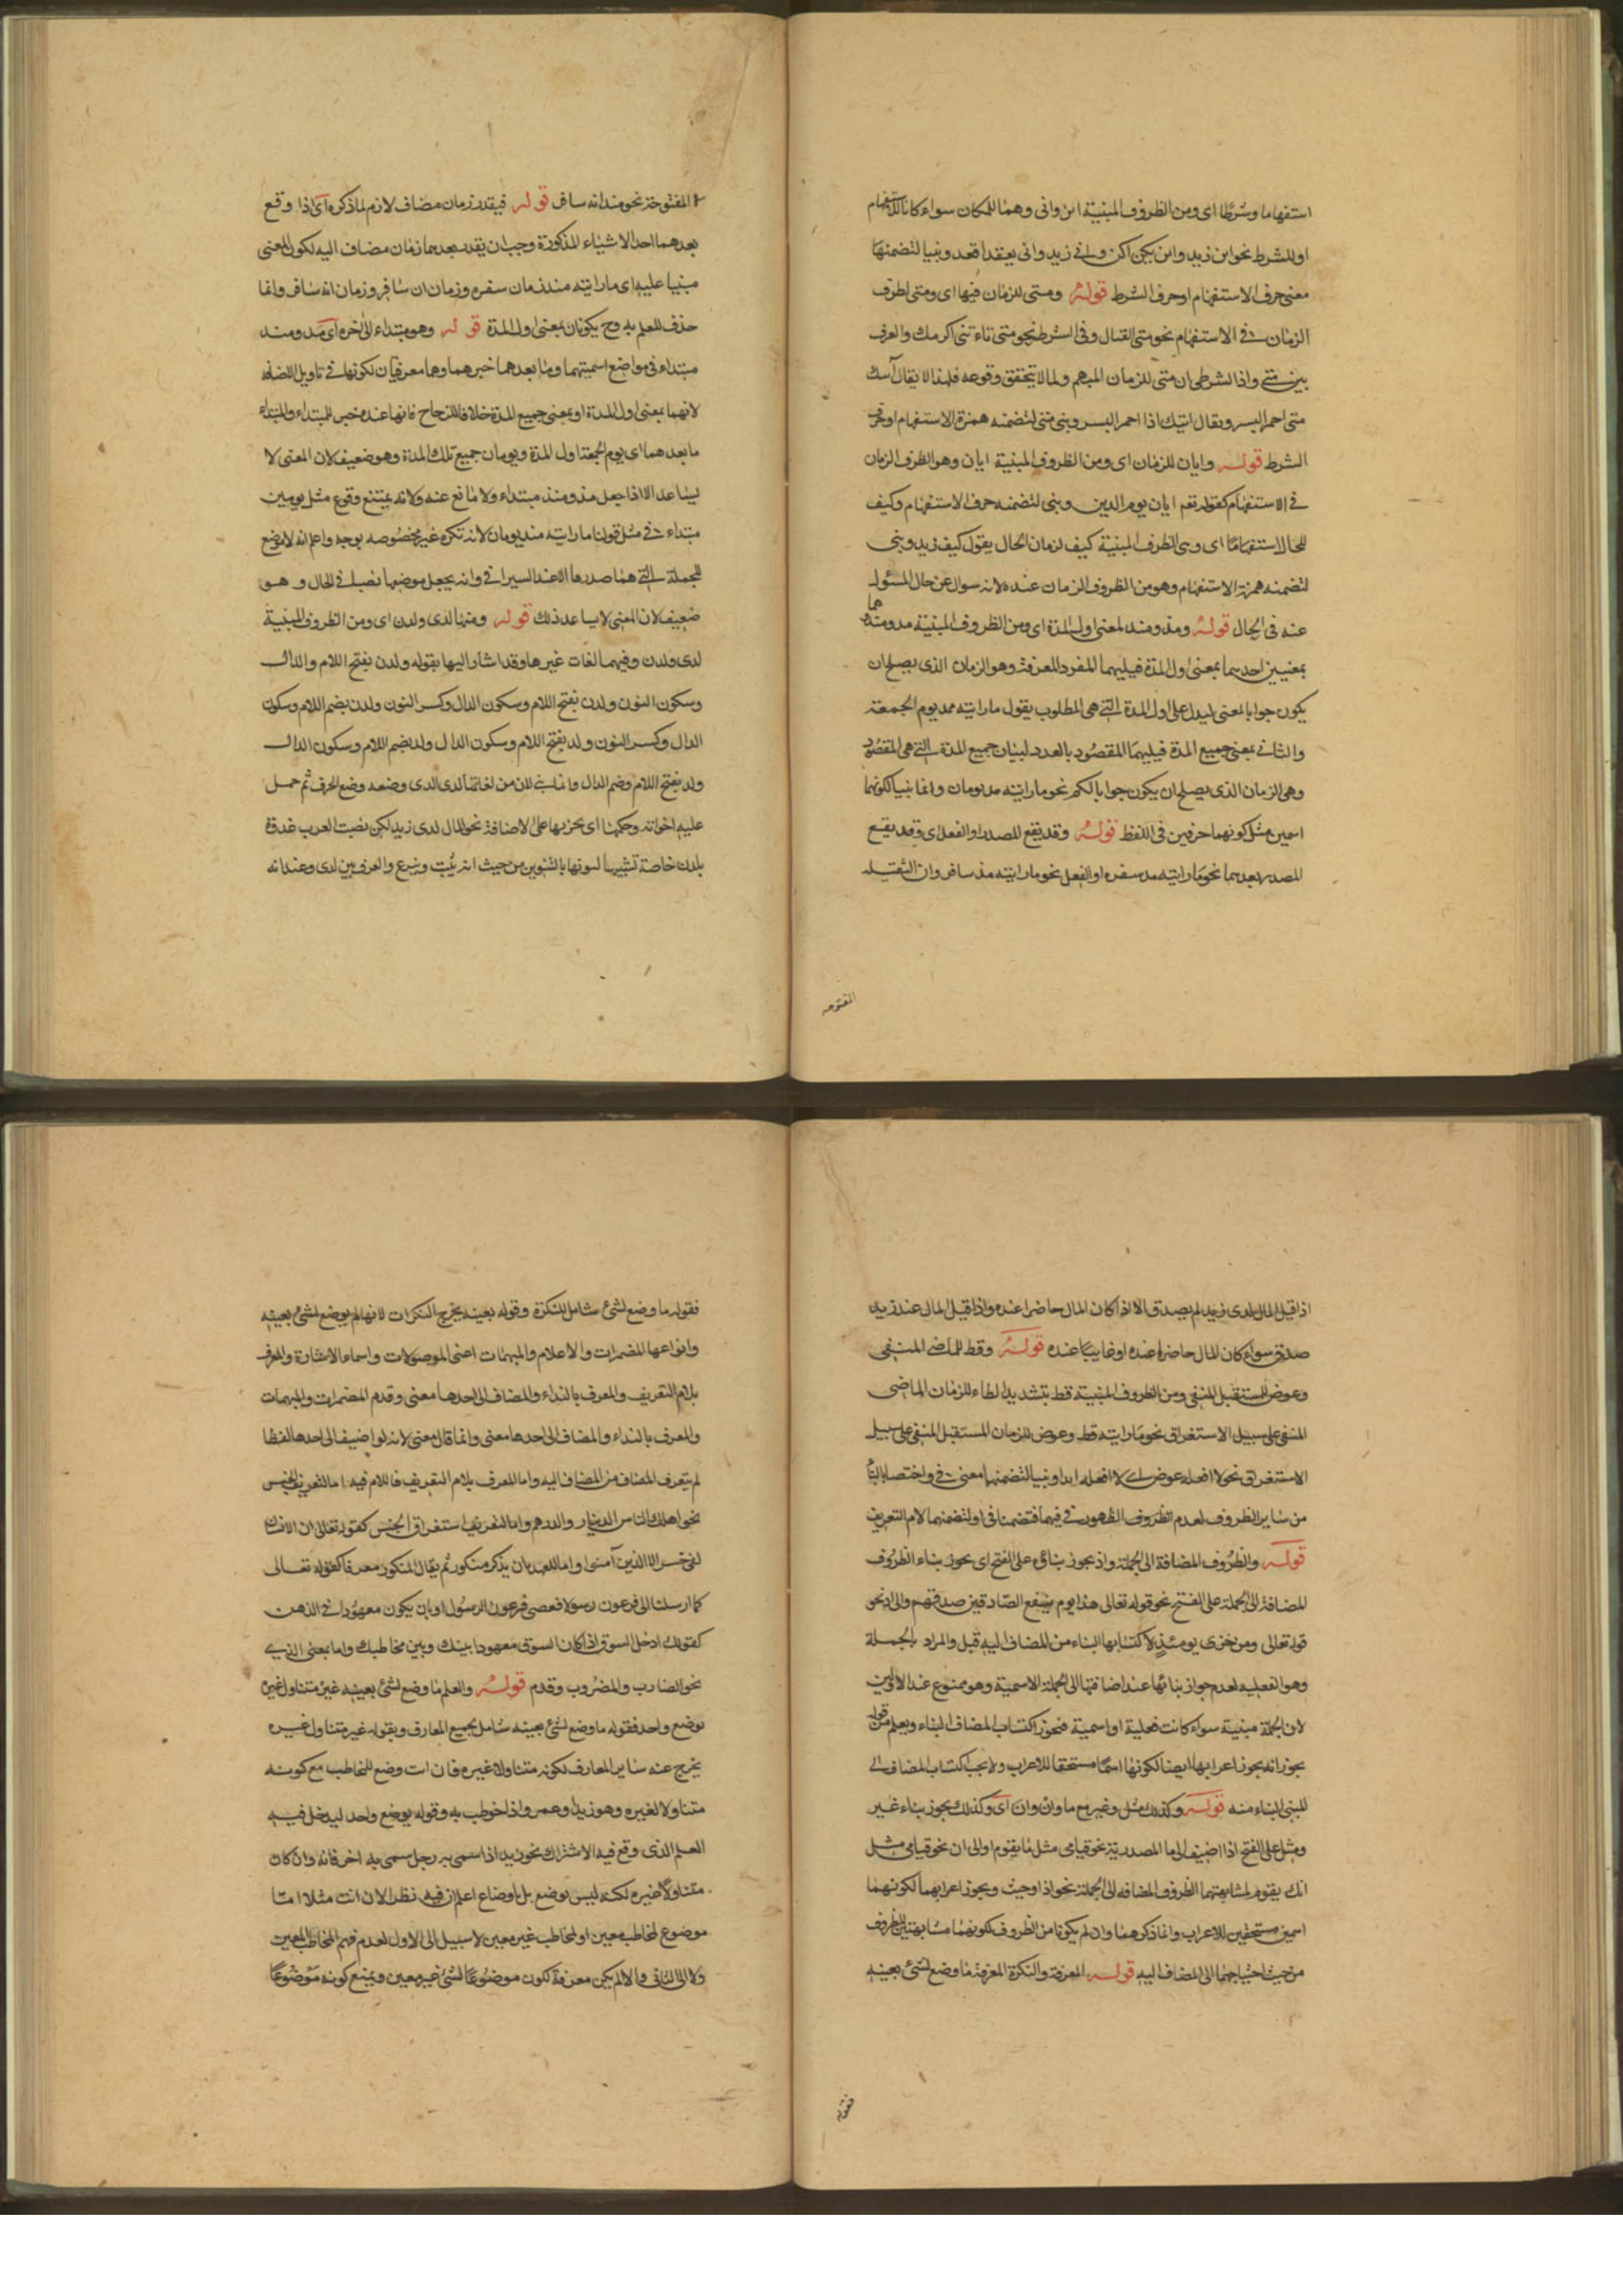 استفهاما وشرطا اى ومن الظروف المبنية اين وانى وهما للمكان سواء كانا للاستفهام
او للشرط نحو اين زيد واين يكن اكن وانى زيد وانى يقعد اقعد وبنيا لتضمنهما
معنى حرف الاستفهام او حرف الشرط قوله ومتى للزمان فيها اى ومتى لظرف
الزمان فى الاستفهام نحو متى القتال وفى الشرط نحو متى تاءتنى اكرمك والفرق
بين متى واذا الشرطى ان متى للزمان المبهم ولما لا يتحقق وقوعه فلهذا لا يقال آتيك
متى احمر البسر ويقال اتيك اذا احمر البسر وبنى متى لتضمنه همزة الاستفهام او حرف
الشرط قوله وايان للزمان اى ومن الظروف المبنية ايان وهو الظرف الزمان
فى الاستفهام كقوله تعم ايان يوم الدين وبنى لتضمنه حرف الاستفهام وكيف
للحال استفهاما اى ومن الظرف المبنية كيف لزمان الحال يقول كيف زيد وبنى
لتضمنه همزة الاستفهام وهو من الظروف الزمان عنده لانه سوال عن حال المسئول
عنه فى الحال قوله ومذ ومنذ لمعنى اول المدة اى ومن الظروف المبنية مذ ومنذ وهما
بمعنيين احدهما بمعنى اول المدة فيليهما المفرد المعرفة وهو الزمان الذى يصلح ان
يكون جوابا لمعنى ليدل على اول المدة التى هى المطلوب يقول ما رايته مذ يوم الجمعة
والثانى بمعنى جميع المدة فيليهما المقصود بالعدد لبيان جميع المدة التى هى المقصود
وهى الزمان الذى يصلح ان يكون جوابا لكم نحو ما رايته مذ يومان وانما بنيا لكونهما
اسمين مثل كونهما حرفين فى اللفظ قوله وقد يقع المصدر او الفعل اى وقد يقع
المصدر بعدهما نحو ما رايته مذ سفره او الفعل نحو ما رايته مذ سافر وان الثقيلة
المفتوحه
المفتوحة نحو منذ انه سافر قوله فيقدر زمان مضاف لازم لما ذكره اى اذا وقع
بعدهما احد الاشياء المذكورة وجب ان يقدر بعدهما زمان مضاف اليه لكون المعنى
مبنيا عليه اى ما رايته منذ زمان سفره وزمان ان سافر وزمان انه سافر وانما
حذف للعلم به وح يكونان بمعنى اول المدة قوله وهو مبتداء الى اخره اى مذ ومنذ
مبتداء فى مواضع اسميتهما وما بعدهما خبرهما وهما معرفتان لكونهما فى تاويل الاضافة
لانهما بمعنى اول المدة او بمعنى جميع المدة خلافا للزجاج فانها عنده خبر للمبتداء والمبتداء
ما بعدهما اى يوم الجمعة اول المدة ويومان جميع تلك المدة وهو ضعيف لان المعنى لا
يساعد الا اذا جعل مذ ومنذ مبتداء ولا مانع عنه ولانه يمتنع وقوع مثل يومين
مبتداء فى مثل قولنا ما رايته منذ يومان لانه نكرة غير مخصوصه بوجه واعلم انه لا موضع
للجملة التى هما صدرها الا عند السيرافى وانه يجعل موضعها نصبا فى الحال وهو
ضعيف لان المعنى لا يساعد ذلك قوله ومنها لدى ولدن اى ومن الظروف المبنية
لدى ولدن وفيهما لغات غيرها وقد اشار اليها بقوله ولدن بفتح اللام والدال
وسكون النون ولدن بفتح اللام وسكون الدال وكسر النون ولدن بضم اللام وسكون
الدال وكسر النون ولد بفتح اللام وسكون الدال ولد بضم اللام وسكون الدال
ولد بفتح اللام وضم الدال وانما بنى لان من لغاتها لدى الذى وضعه وضع الحرف ثم حمل
عليه اخواته وحكمها ان يجر بها على الاضافة نحو المال لدى زيد لكن نصبت العرب غدوة
بلدن خاصة تشبيها لنونها بالتنوين من حيث انه يثبت وينزع والفرق بين لدى وعند انه
اذا قيل المال لدى زيد لم يصدق الا اذا كان المال حاضرا عنده واذا قيل المال عند زيد
صدق سواء كان المال حاضرا عنده او غايبا عنده قوله وقط للماضى المنفى
وعوض للمستقبل المنفى ومن الظروف المبنية قط بتشديد الطاء للزمان الماضى
المنفى على سبيل الاستغراق نحو ما رايته قط وعوض للزمان المستقبل المنفى على سبيل
الاستغراق نحو لا افعله عوض اى لا افعله ابدا وبنيا لتضمنهما معنى فى واختصا بالبناء
من ساير الظروف لعدم الظروف الظهور فى فيهما فتضمنا فى او لتضمنهما لام التعريف
قوله والظروف المضافة الى الجملة واذ يجوز بناؤه على الفتح اى يجوز بناء الظروف
المضافة الى الجملة على الفتح نحو قوله تعالى هذا يوم ينفع الصادقين صدقهم والى اذ نحو
قوله تعالى ومن خزى يومئذ لاكتسابها البناء من المضاف اليه قيل والمراد بالجملة
وهو الفعلية لعدم جواز بنائها عند اضافتها الى الجملة الاسمية وهو ممنوع عند الاولين
لان الجملة مبنية سواء كانت فعلية او اسمية فيجوز اكتساب المضاف البناء ويعلم من قوله
يجوز انه يجوز اعرابها ايضا لكونها اسما مستحقا للاعراب ولا يجب اكتساب المضاف الى
المبنى البناء منه قوله وكذلك مثل وغير مع ما وان وان اى وكذلك يجوز بناء غير
ومثل على الفتح اذا اضيف الى ما المصدرية نحو قيامى مثل ما يقوم او الى ان نحو قيامى مثل
انك يقوم لمشابهتهما الظروف المضافه الى الجملة نحو اذ او حيث ويجوز اعرابهما لكونهما
اسمين مستحقين للاعراب وانما ذكرهما وان لم يكونا من الظروف لكونهما مشابهتين للظروف
من حيث احتياجهما الى المضاف اليه قوله المعرفة والنكرة المعرفة ما وضع لشئ بعينه
فقوله
فقوله ما وضع لشئ شامل للنكرة وقوله بعينه يخرج النكرات لانها لم يوضع لشئ بعينه
وانواعها المضمرات والاعلام والمبهمات اعنى الموصولات واسماء الاشارة والمعرف
بلام التعريف والمعرف بالنداء والمضاف الى احدها معنى وقدم المضمرات والمبهمات
والمعرف بالنداء والمضاف الى احدها معنى وانما قال معنى لانه لو اضيف الى احدها لفظا
لم يتعرف المضاف من المضاف اليه واما المعرف بلام التعريف فاللام فيه اما لتعريف الجنس
نحو اهلك الناس الدينار والدرهم واما لتعريف استغراق الجنس كقوله تعالى ان الانسان
لفى خسر الا الذين آمنوا واما للعهد بان يذكر منكور ثم يقال المنكور معرفا كقوله تعالى
كما ارسلنا الى فرعون رسولا فعصى فرعون الرسول او بان يكون معهودا فى الذهن
كقولك ادخل السوق اذا كان السوق معهودا بينك وبين مخاطبك واما بمعنى الذى
نحو الضارب والمضروب وقدم قوله والعلم ما وضع لشئ بعينه غير متناول غيره
بوضع واحد فقوله ما وضع لشئ بعينه شامل لجميع المعارف وبقوله غير متناول غيره
يخرج عنه ساير المعارف لكونه متناولا غيره فان انت وضع للمخاطب مع كونه
متناولا لغيره وهو زيد وعمرو اذا خوطب به وقوله بوضع واحد ليدخل فيه
العلم الذى وقع فيه الاشتراك نحو زيد اذا سمى به رجل سمى به اخر فانه وان كان
متناولا غيره لكنه ليس بوضع بل باوضاع اعلم ان فيه نظر لان انت مثلا اما
موضوع لمخاطب معين او لمخاطب غير معين لا سبيل الى الاول لعدم فهم المخاطب المعين
ولا الى الثانى والا لم يكن معرفة لكون موضوعا لشئ غير معين ويمتنع كونه موضوعا